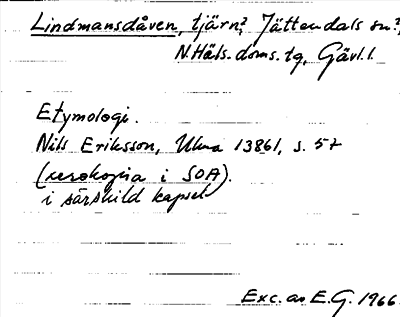 Lindmansdåven, tjärn?, Jättendals sn?,
N.Häls. doms. tg, Gävl. l.
Etymologi.
Nils Eriksson, Ulma 13861, s. 57
(xerokopia i SOA).
i särskild kapsel
Exc. av E.G. 1966